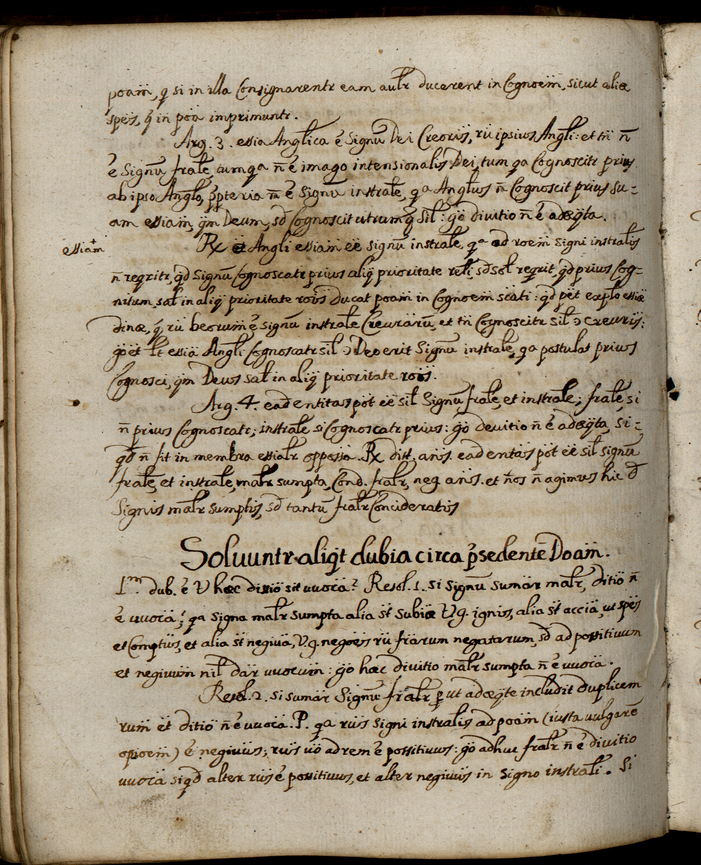 poam̃, q si in illa Consignarentr eam aultr ducerent in Cognoem̃, sicut aliæ
speis, q̃ in poa imprimuntr.
Arg. 3. essia Anglica ẽ Signũ Dei Creoris, rũ ipsius Angli: et tñ ñ
ẽ Signũ frale, tum qa ñ ẽ imago intensionalis Dei, tum qa Cognoscitr prius
ab ipso Anglo, p̃pteria ñ ẽ Signũ instrale, qa Anglus ñ Cognoscit prius su-
am essiam, qm̃ Deum, sd Cognoscit utrumq sil: go divitio ñ ẽ adæq̃ta.
essiam
Rx Angli essiam ẽe signũ instrale, qa ad roem signi instralis
ñ reqritr, qd Signũ Cognoscatr prius aliq̃ prioritate reli, sd sol reqrit, qd prius Cog-
nitum, sal in aliq̃ prioritate rois ducat poam in Cognoem siati: qd pẽt explo essiæ
dinæ, q̃ rũ beorum ẽ signũ instrale Creurarũ, et tñ Cognoscitr sil ɔ creuris:
go et lt essia Angli Cognoscatr sil ɔ Deo erit Signũ instrale, qa postulat prius
Cognosci, qm̃ Deus sal in aliq̃ prioritate rois.
Arg. 4. eadentitas pot ẽe sil Signũ frale, et instrale; frale, si
ñ prius Cognoscatr; instrale si Cognoscatr prius: go devitio ñ ẽ adæq̃ta, si-
qd ñ fit in membra essialr opposja. Rx dist. ans. eadentas pot ẽe sil signũ
frale, et instrale, malr sumpta, Cond. fralr, neg. ans. et ños ñ agimus hic d
Signis malr sumptis, sd tantũ fralr Concideratis
Soluuntr aliq̃t dubia circa p̃sedentẽ Doam̃.
1m dub. ẽ V hæc divisio sit uuoca? Resol. 1. si signũ sumar malr, ditio ñ
ẽ uuoca; qa signa malr sumpta alia st subiæ V.g. ignis, alia st accia, ut speis
et Comptus, et alia st negiua, V.g. negoeis rũ friarum negatarum, sd ad possitiuum
et negiuum nil dar uuocum: go hæc divitio malr sumpta ñ ẽ uuoca.
Resol. 2. si sumar Signũ fralr, put adæq̃te includit duplicem
rum et ditio ñ ẽ uuoca. P. qa ruis signi instralis ad poam (iusta uulgare
opioem) ẽ negiuus; ruis uõ ad rem ẽ possitiuus: go adhuc fralr ñ ẽ divitio
uuoca siqd alter ruis ẽ possitiuus, et alter negiuis in Signo instrali. Si